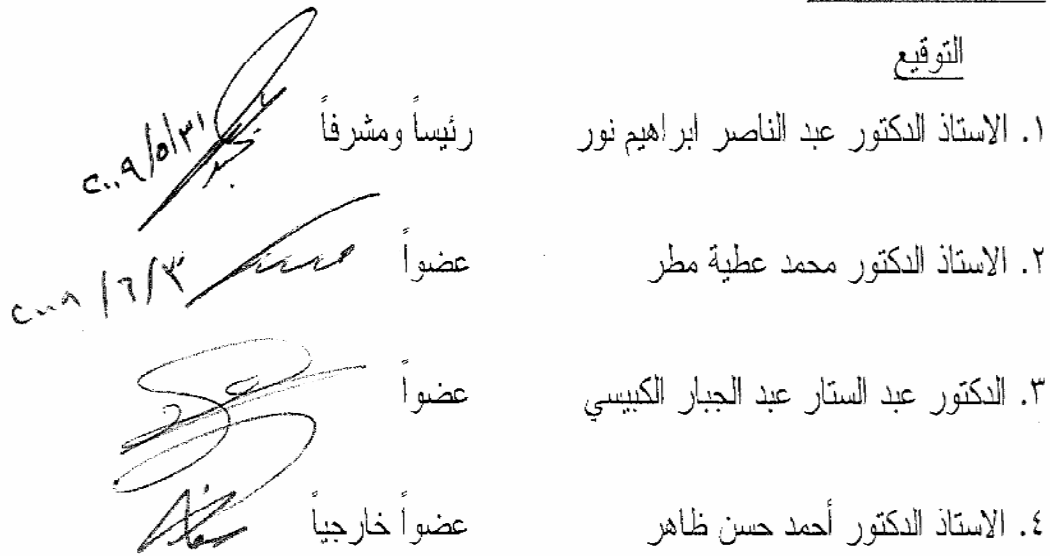 التوقيع
١. الاستاذ الدكتور عبد الناصر ابراهيم نور رئيساً ومشرفاً ٢٠٠٩/٥/٣١
٢. الاستاذ الدكتور محمد عطية مطر عضواً ٢٠٠٩/٦/٣
٣. الدكتور عبد الستار عبد الجبار الكبيسي عضواً
٤. الاستاذ الدكتور أحمد حسن ظاهر عضواً خارجياً